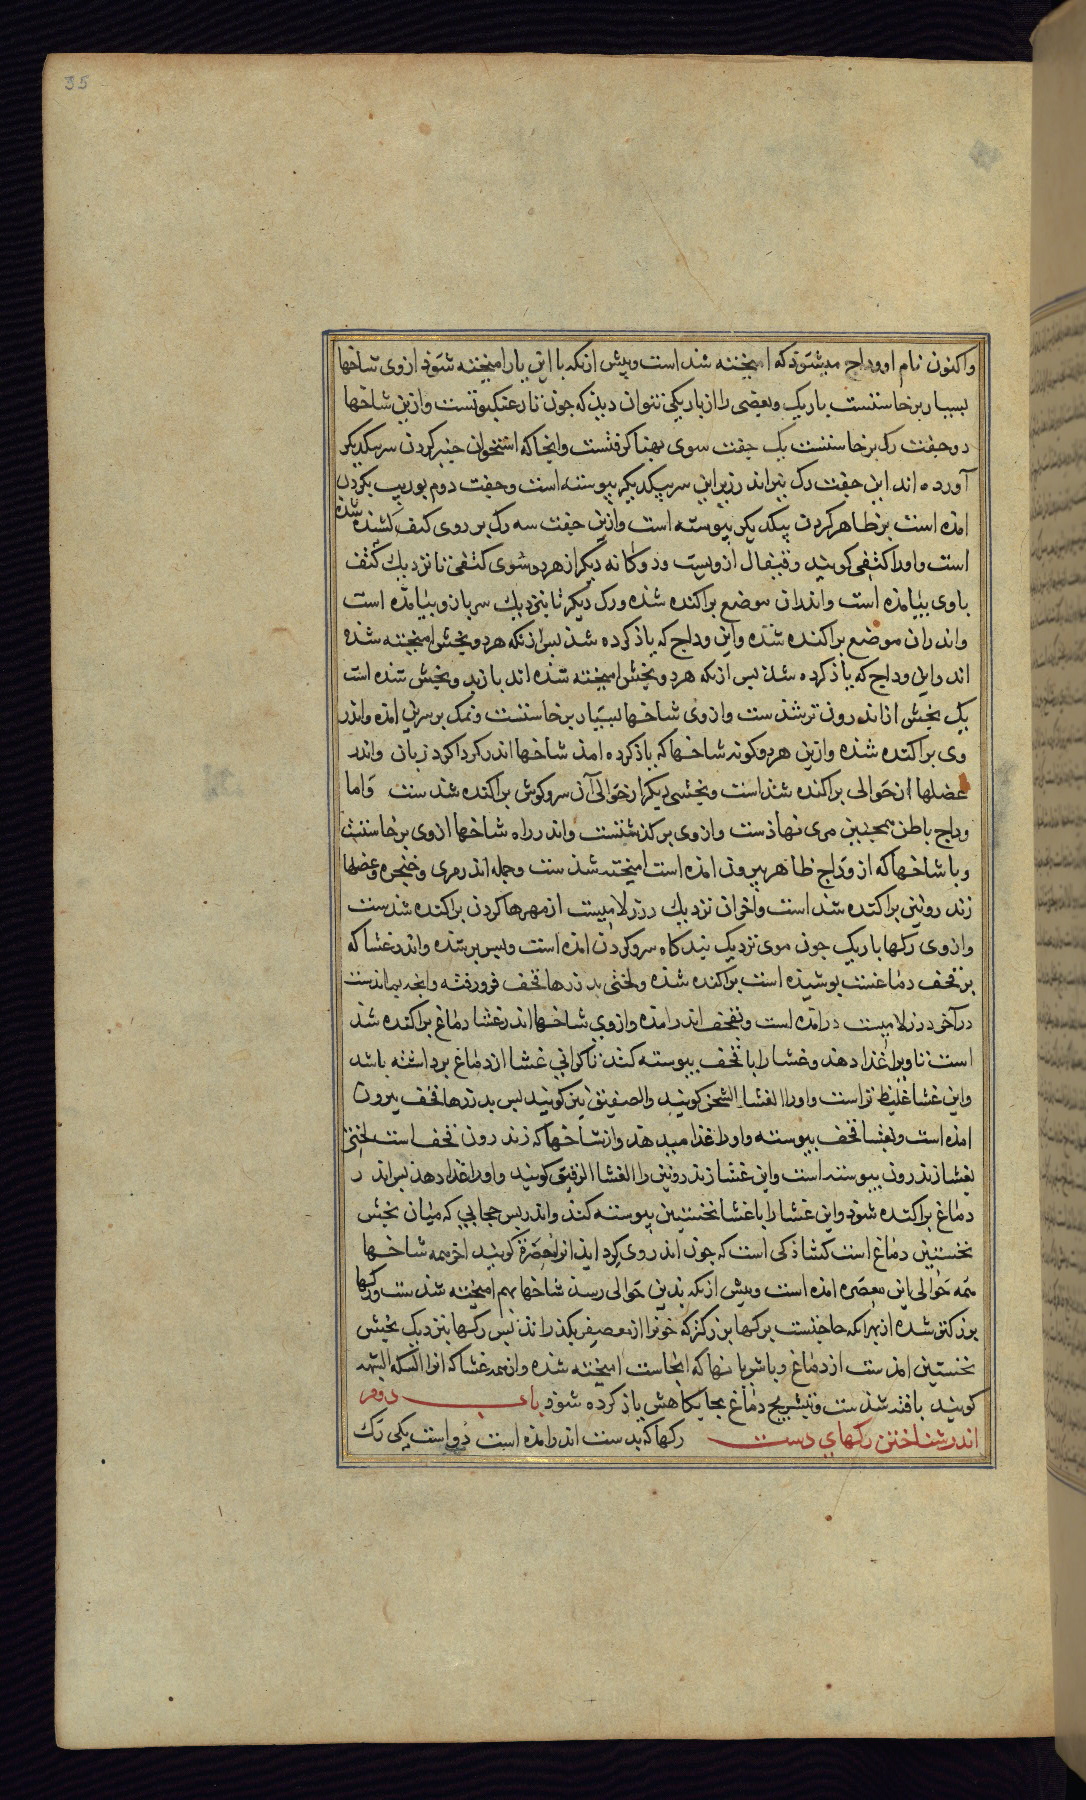 35
واکنون نام او وداج میشود که امیخته شذ است وپیش ازنکه با این یار امیخته شود ازوی شاخها
بسیار برخاستست باریک وبعضی را از باریکی نتوان دیذ که جون تار عنکبوتست وازین شاخها
دو جفت رک برخاستست یک جفت سوی پهنا کرفتست وانجا که استخوان جنبر کردن سر بیکدیکر
آورده اند این جفت رک نیز اندر زیر این سر بیکدیکر پیوسته است وجفت دوم بوریب بکردن
امذه است بر ظاهر کردن بیکدیکر پیوسته است وازین جفت سه رک بر روی کتف کشیذه شذه
است واورا کتفی کویند وقیفال ازویست ودوکانه دیکر از هر دو سوی کتفی تا نزدیک کتف
با وی بیامذه است واندران موضع براکنده شذه ورک دیکر تا بنزدیک سر بازو بیامذه است
واندران موضع براکنده شذه واین وداج که یاذ کرده شذ بس ازنکه هر دو بخش امیخته شذه
اند واین وداج که یاذ کرده شذ بس ازنکه هر دو بخش امیخته شذه اند باز بدو بخش شذه است
یک بخش از اندرون تر شذست وازوی شاخها بسیار برخاستست ونمک برسرین امذه واندر
وی براکنده شذه وازین هر دو کونه شاخها که یاذ کرده امذ شاخها اندر کرداکرد زبان واندر
عضلها از حوالی براکنده شذاست وبخشی دیکر از حوالی آن سر وکوش براکنده شذست واما
وداج باطن همچنین مری نهاذست وازوی برکذشتست واندر راه شاخها ازوی برخاستست
وبا شاخها که از وداج ظاهر بیرون امذه است امیخته شذست وجمله اندر مری وخنجره وعضلها
زندرونین براکنده شذاست واخران نزدیک درز لامیست از مهرها کردن براکنده شذست
وازوی رکها باریک جون موی نزدیک بیذ کاه سر وکردن امذه است وبس بر شذه واندر غشا که
بر قحف دماغست بوشیذه است براکنده شذه ولختی بدرزها قحف فرورفته وانجه بماندست
درآخر درز لامیست درآمذه است وبقحف اندرامذه وازوی شاخها اندر غشا دماغ براکنده شذ
است تا ویرا غذا دهد وغشا را با قحف پیوسته کند تا کرانی غشا از دماغ برداشته باشد
واین غشا غلیظ تر است واورا الغشا الثخن کویند والصفیق نیز کویند بس بدرزها قحف بیرون
امذه است وبغشا قحف پیوسته واورا غذا میدهد وازشاخها که زندرون قحف است لختی
بغشا زندرون پیوسته است واین غشا زندرونین را الغشا الرقیق کویند واورا غذا دهذ بس اندر
دماغ براکنده شوذ واین غشا را با غشا نخستین پیوسته کند واندر بس حجابی که میان بخش
نخستین دماغ است کشاذکی است که جون اندروی کرد اید انرا معصره کویند اخر همه شاخها
همه حوالی این معصره امذه است وپیش ازنکه بذین حوالی رسد شاخها بهم امیخته شذست ورکها
بزرکتر شده ازبهرانکه حاجتست برکها بزرکتر که خون را از معصره بکذراند بس رکها بنزدیک بخش
نخستین امذست از دماغ وبا شریانها که انجاست امیخته شذه وازهمه غشا که انرا الشبکه المشیمه
کویند بافته شذست وبتشریح دماغ بجایکاهش یاذ کرده شوذ باب دوم
اندر شناختن رکهای دست رکها که بدست اندرامذه است دواست یکی رک